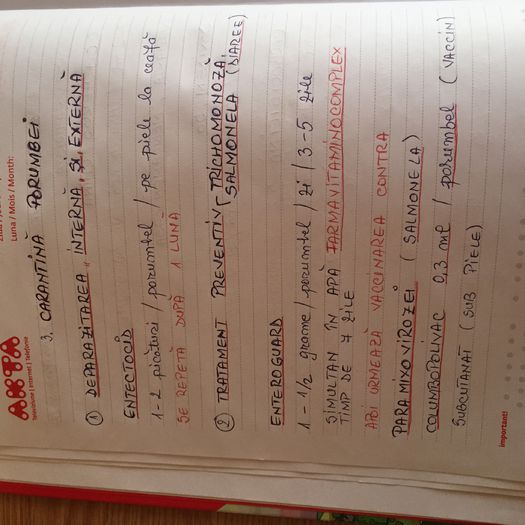 Luna / Mois / Month:
AKTA
Televiziune | Internet | Telefonie
3. CARANTINĂ PORUMBEI
① DEPARAZITAREA INTERNĂ ȘI EXTERNĂ
ENTECTOCID
1-2 picături / porumbel / pe piele la ceafă
SE REPETĂ DUPĂ 1 LUNĂ
② TRATAMENT PREVENTIV (TRICHOMONOZĂ,
SALMONELA (DIAREE)
ENTEROGUARD
1 - 1/2 grame / porumbel / zi / 3-5 zile
SIMULTAN ÎN APĂ FARMAVITAMINOCOMPLEX
TIMP DE 7 ZILE
APOI URMEAZĂ VACCINAREA CONTRA
PARAMIXOVIROZEI (SALMONELA)
COLUMBOPOLIVAC 0,3 ml / porumbel (VACCIN)
SUBCUTANAT (SUB PIELE)
important!